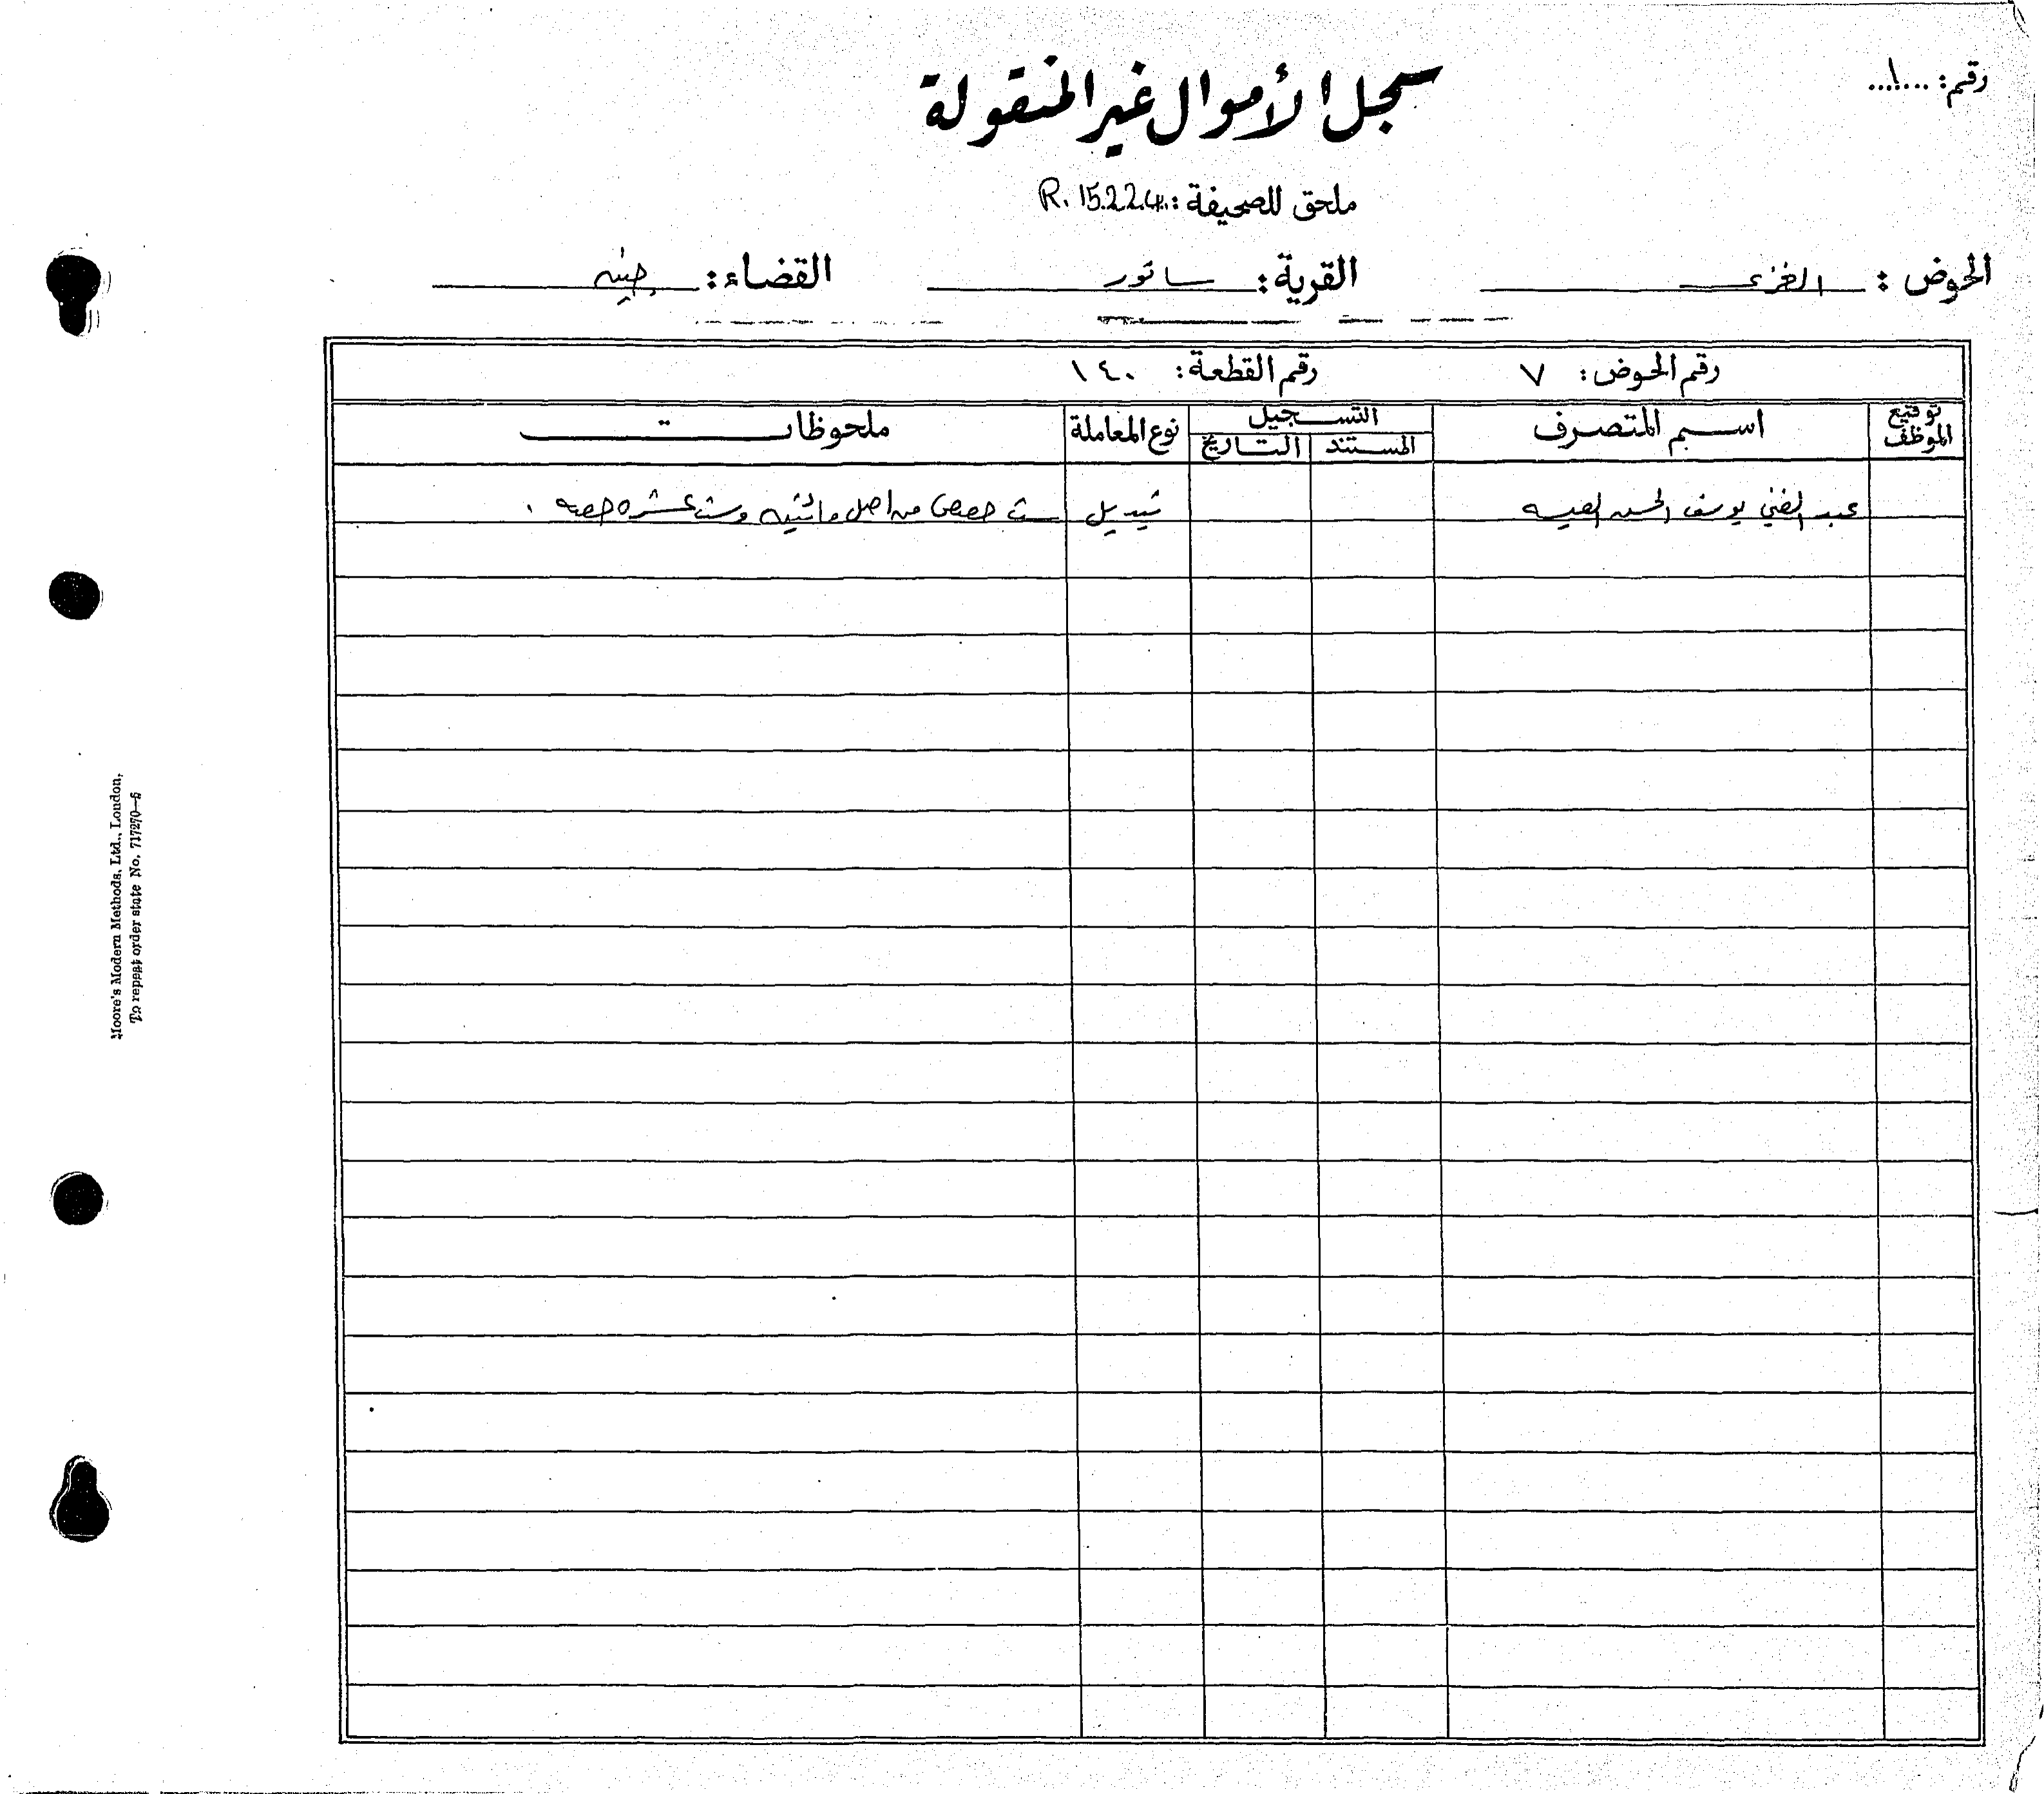 رقم: ...١...
سجل الأموال غير المنقولة
ملحق للصحيفة: R. 15224
الحوض: الغربي القرية: سانور القضاء: جنين
رقم الحوض: ٧ رقم القطعة: ١٤٠
توقيع الموظف اسم المتصرف التسجيل نوع المعاملة ملحوظات
المستند التاريخ
عبد الغني يوسف الحسن العيسه تبديل ست حصص من اصل مائتين وست عشره حصه .
Moore's Modern Methods, Ltd., London,
To repeat order state No. 717270—5